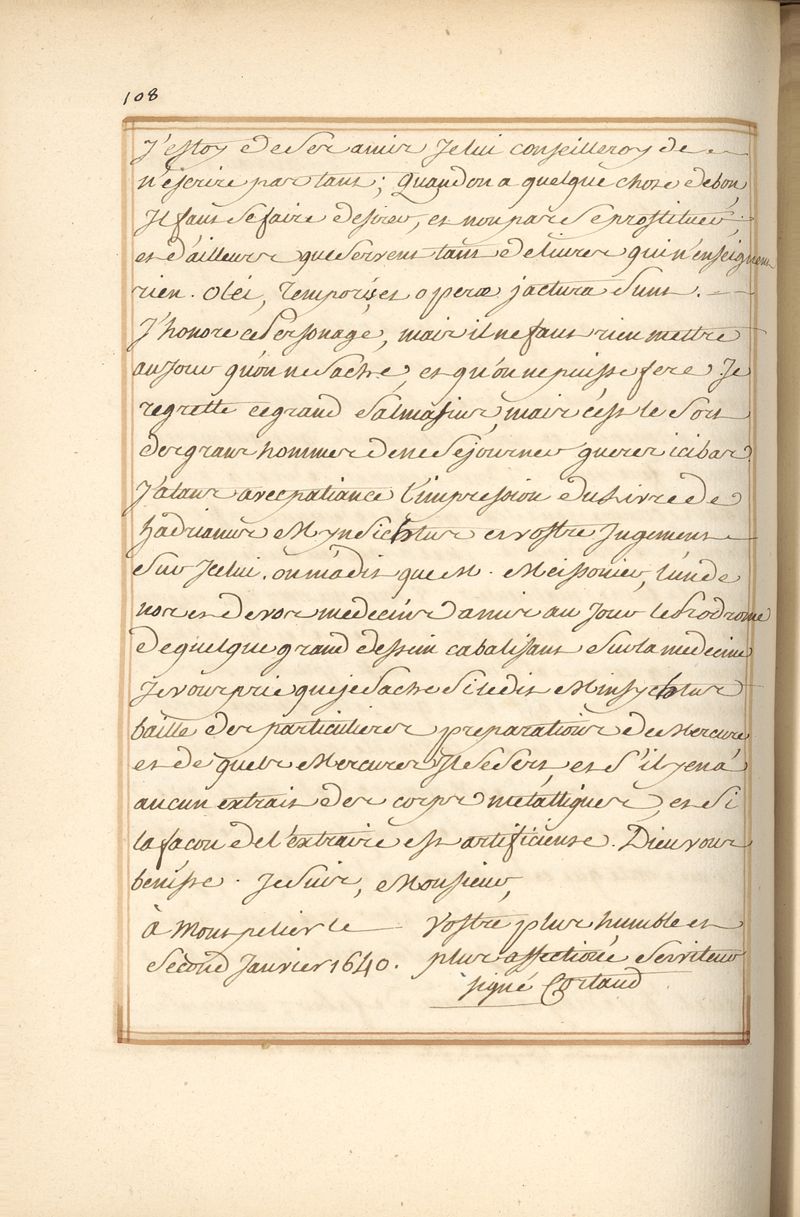 108
J'estoy de Ses amis Je lui conseilleroy de
n'escrire pas tant; Quand on a quelque chose de bon,
Il faut Se faire desirer, et non pas Se prostituer;
et d'ailleurs que Servent tant de livres qui n'enseignent
rien. Olei, Temporis et operæ jactura Sunt.
J'honore ce Personage, mais il ne faut rien mettre
au Jour qu'on ne Sache, et qu'on ne puisse fere. Je
regrette ce grand Salmasius, mais c'est le Sort
des grans hommes de ne Séjourner gueres ici bas.
J'atans avec patiance l'impression du Livre de
hadrianus Mynsichtus et vostre Jugement
Sur Icelui. on m'a dit que M. Meissonier, l'un de
nos et de vos medecins a mis au Jour le Prodrome
de quelque grand dessein cabalisant Sur la medecine
Je vous prie que je Sache Si ledit Minsychtus
baille des particulieres preparations de Mercure
et de quels Mercures Il Se Sert, et S'il y en a
aucun extrait des corps métalliques, et Si
la facon de l'extraire est artificieuse. Dieu vous
benisse. Je Suis, Monsieur,
à Montpelier le Vostre plus humble et
Second Janvier 1640. plus affectioné Serviteur
signé Cortaud